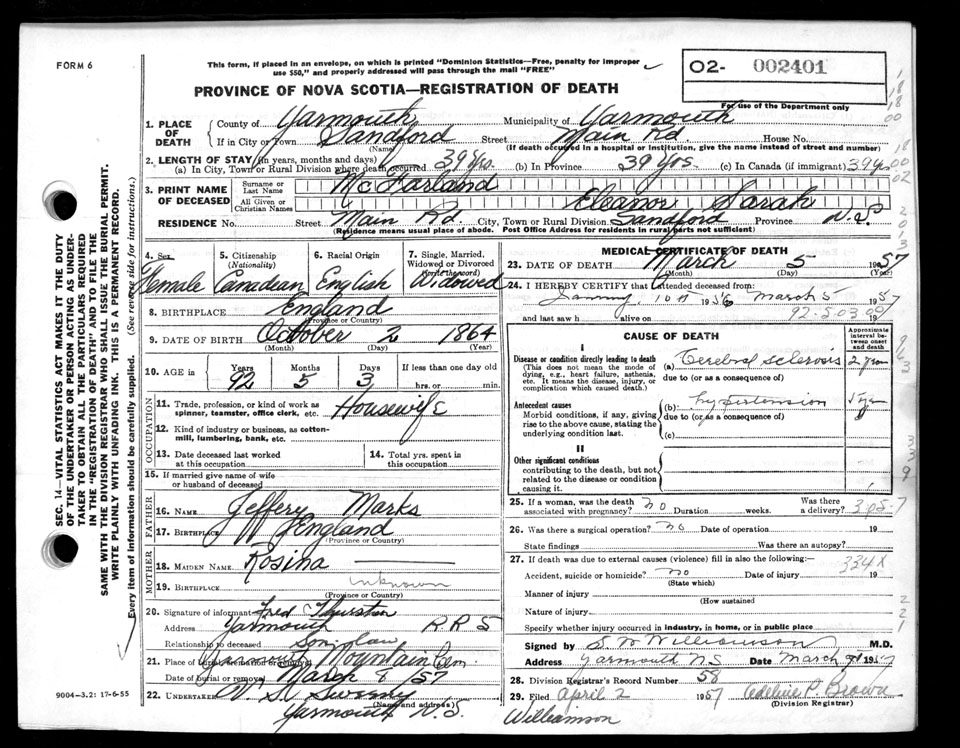 FORM 6
This form, if placed in an envelope, on which is printed "Dominion Statistics—Free, penalty for improper
use $50," and properly addressed will pass through the mail "FREE"
O2- 002401
For use of the Department only
PROVINCE OF NOVA SCOTIA—REGISTRATION OF DEATH
1. PLACE OF DEATH County of Yarmouth Municipality of Yarmouth
If in City or Town Sandford Street Main Rd House No.
(Name) (If death occurred in a hospital or institution, give the name instead of street and number)
2. LENGTH OF STAY (in years, months and days)
(a) In City, Town or Rural Division where death occurred 39 Yrs. (b) In Province 39 Yrs. (c) In Canada (if immigrant) 39 Yrs
3. PRINT NAME OF DECEASED Surname or Last Name McFarland
All Given or Christian Names Eleanor Sarah
RESIDENCE No. Street Main Rd. City, Town or Rural Division Sandford Province N.S.
(Residence means usual place of abode. Post Office Address for residents in rural parts not sufficient)
4. Sex 5. Citizenship (Nationality) 6. Racial Origin 7. Single, Married, Widowed or Divorced (Write the word)
Female Canadian English Widowed
8. BIRTHPLACE England
(Province or Country)
9. DATE OF BIRTH October 2 1864
(Month) (Day) (Year)
10. AGE in Years Months Days If less than one day old
92 5 3 hrs. or min.
OCCUPATION
11. Trade, profession, or kind of work as spinner, teamster, office clerk, etc. Housewife
12. Kind of industry or business, as cotton-mill, lumbering, bank, etc.
13. Date deceased last worked at this occupation
14. Total yrs. spent in this occupation
15. If married give name of wife or husband of deceased
FATHER
16. NAME Jeffery Marks
17. BIRTHPLACE England
(Province or Country)
MOTHER
18. MAIDEN NAME Rosina
19. BIRTHPLACE Unknown
(Province or Country)
20. Signature of informant Fred Thurston
Address Yarmouth R R 5
Relationship to deceased Son in law
21. Place of burial, cremation or removal Yarmouth Mountain Cem
Date of burial or removal March 8/57
22. UNDERTAKER V. S. Sweeny
(Name and address)
Yarmouth N.S.
MEDICAL CERTIFICATE OF DEATH
23. DATE OF DEATH March 5 1957
(Month) (Day) (Year)
24. I HEREBY CERTIFY that I attended deceased from:
10th 1956 March 5 1957
and last saw h alive on 19
92-503 00
CAUSE OF DEATH
Approximate interval between onset and death
I
Disease or condition directly leading to death
(This does not mean the mode of dying, e.g., heart failure, asthenia, etc. It means the disease, injury, or complication which caused death.)
(a) Cerebral sclerosis 2 years
due to (or as a consequence of)
Antecedent causes
Morbid conditions, if any, giving rise to the above cause, stating the underlying condition last.
(b) hypertension
due to (or as a consequence of)
(c)
II
Other significant conditions
contributing to the death, but not related to the disease or condition causing it.
25. If a woman, was the death associated with pregnancy? no Duration weeks. Was there a delivery?
26. Was there a surgical operation? no Date of operation 19
State findings Was there an autopsy?
27. If death was due to external causes (violence) fill in also the following:— 334X
Accident, suicide or homicide? no Date of injury 19
(State which)
Manner of injury
(How sustained
Nature of injury
Specify whether injury occurred in industry, in home, or in public place
Signed by S W Williamson M.D.
Address Yarmouth N S Date March 1957
28. Division Registrar's Record Number 58
29. Filed April 2 1957 Adeline P. Brown
(Division Registrar)
Williamson
SEC. 14—VITAL STATISTICS ACT MAKES IT THE DUTY
OF THE UNDERTAKER OR PERSON ACTING AS UNDERTAKER
TO OBTAIN ALL THE PARTICULARS REQUIRED
IN THE "REGISTRATION OF DEATH" AND TO FILE THE
SAME WITH THE DIVISION REGISTRAR WHO SHALL ISSUE THE BURIAL PERMIT.
WRITE PLAINLY WITH UNFADING INK. THIS IS A PERMANENT RECORD.
Every item of information should be carefully supplied. (See reverse side for instructions.)
9004-3.2: 17-6-55